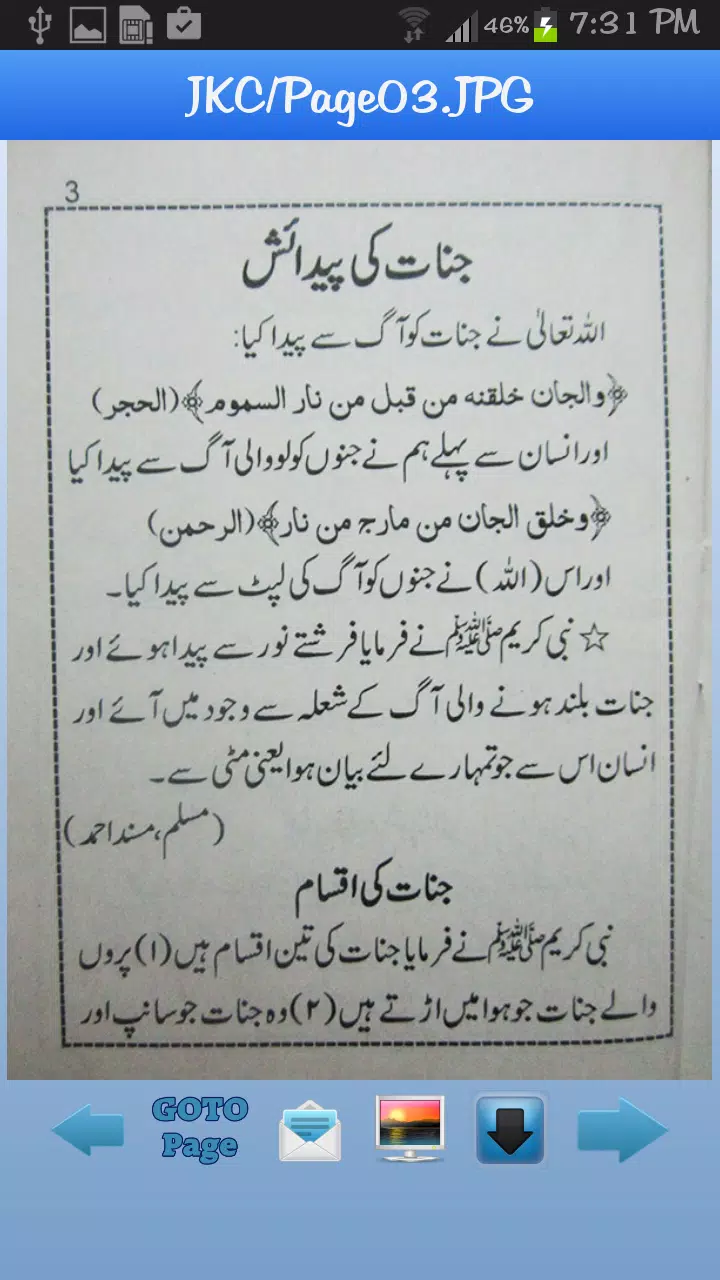 46% 7:31 PM
JKC/Page03.JPG
3
جنات کی پیدائش
اللہ تعالیٰ نے جنات کو آگ سے پیدا کیا:
﴿والجان خلقنه من قبل من نار السموم﴾(الحجر)
اور انسان سے پہلے ہم نے جنوں کو لو والی آگ سے پیدا کیا
﴿وخلق الجان من مارج من نار﴾(الرحمن)
اور اس (اللہ) نے جنوں کو آگ کی لپٹ سے پیدا کیا۔
☆ نبی کریم ﷺ نے فرمایا فرشتے نور سے پیدا ہوئے اور
جنات بلند ہونے والی آگ کے شعلہ سے وجود میں آئے اور
انسان اس سے جو تمہارے لئے بیان ہوا یعنی مٹی سے۔
(مسلم، مسند احمد)
جنات کی اقسام
نبی کریم ﷺ نے فرمایا جنات کی تین اقسام ہیں (۱) پروں
والے جنات جو ہوا میں اڑتے ہیں (۲) وہ جنات جو سانپ اور
GOTO
Page